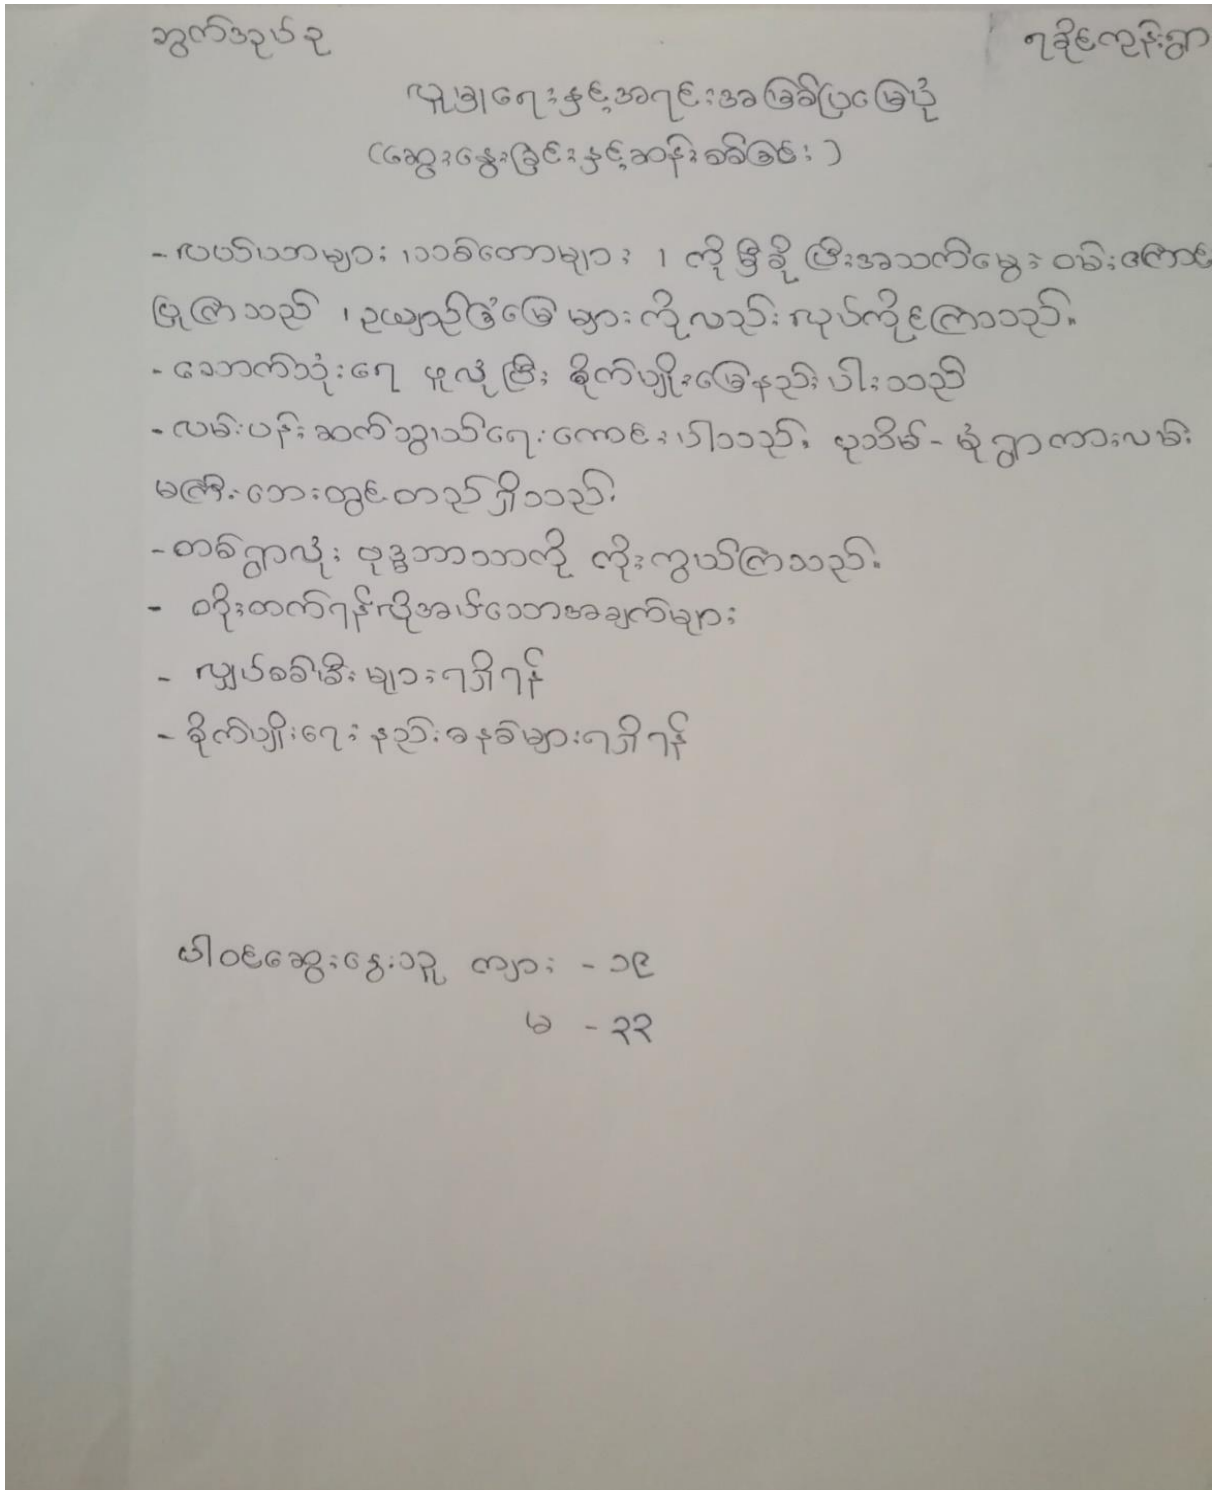 ဘွက်ဒဥယ်ဥ ရခိုင်ကုန်းရွာ
လူမှုရေးနှင့်အရင်းအမြစ်ပြမြေပုံ
(ဆွေးနွေးခြင်းနှင့်ဆန်းစစ်ခြင်း)
- လယ်ယာများ ၊ သစ်တောများ ၊ ကိုမှီခိုပြီးအသက်မွေးဝမ်းကြောင်
ပြုကြသည် ၊ ဥယျာဉ်ခြံမြေများကိုလည်းလုပ်ကိုင်ကြသည်။
- သောက်သုံးရေ ဖူလုံပြီး စိုက်ပျိုးမြေနည်းပါးသည်
- လမ်းပန်းဆက်သွယ်ရေးကောင်းပါသည်။ ပုသိမ် - မုံရွာကားလမ်း
မကြီးဘေးတွင်တည်ရှိသည်။
- တစ်ရွာလုံး ဗုဒ္ဓဘာသာကို ကိုးကွယ်ကြသည်။
- တိုးတက်ရန်လိုအပ်သောအချက်များ
- လျှပ်စစ်မီးများရရှိရန်
- စိုက်ပျိုးရေးနည်းစနစ်များရရှိရန်
ပါဝင်ဆွေးနွေးသူ ကျား - ၁၉
မ - ၃၃